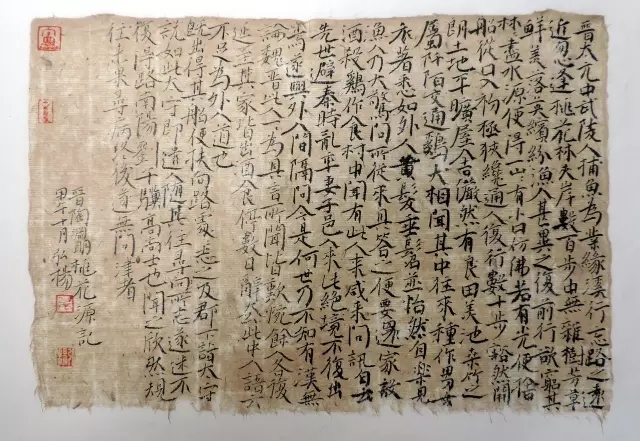 晉太元中武陵人捕魚為業緣溪行忘路之遠
近忽逢桃花林夾岸數百步中無雜樹芳草
鮮美落英繽紛漁人甚異之復前行欲窮其
林盡水源便得一山有小口仿佛若有光便捨
船從口入初極狹纔通人復行數十步豁然開
朗土地平曠屋舍儼然有良田美池桑竹之
屬阡陌交通鷄犬相聞其中往來種作男女
衣著悉如外人黃髮垂髫並怡然自樂見
漁人乃大驚問所從來具答之便要還家設
酒殺鷄作食村中聞有此人來咸來問訊自云
先世避秦時亂率妻子邑人來此絕境不復出
焉遂與外人間隔問今是何世乃不知有漢無
論魏晉此人一一為具言所聞皆歎惋餘人各復
延至其家皆出酒食停數日辭去此中人語云
不足為外人道也
既出得其船便扶向路處處志之及郡下詣太守
說如此太守即遣人隨其往尋向所志遂迷不
復得路南陽劉子驥高尚士也聞之欣然規
往未果尋病終後遂無問津者
晉陶淵明桃花源記
甲午十月弘揚